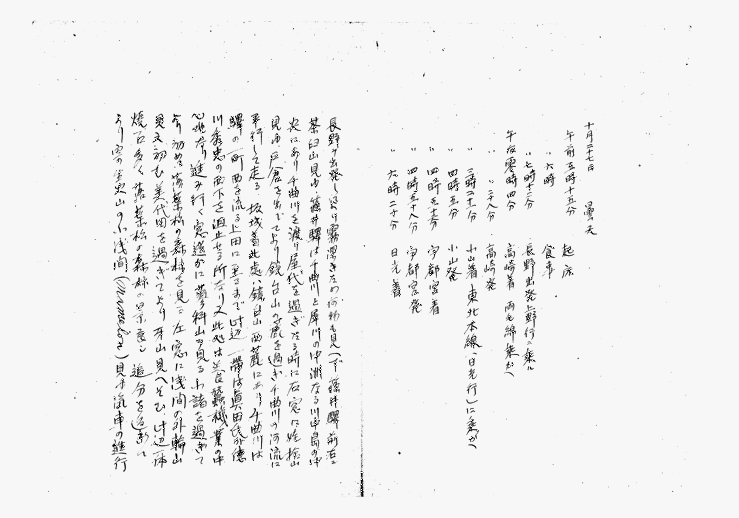 十月二十七日 曇天
午前五時十五分 起床
〃 六時 食事
〃 七時十三分 長野出発上野行ニ乗ル
午后零時四分 高崎着 両毛線乗かへ
〃 二十八分 高崎発
〃 三時二十分 小山着 東北本線(日光行)に乗かへ
〃 四時五分 小山発
〃 四時五十分 宇都宮着
〃 四時五十八分 宇都宮発
〃 六時二十分 日光着
長野を出発 霧深き為め何物も見へず 篠井駅前右に
茶臼山見ゆ 篠井駅は千曲川と犀川の中洲なる川中島の中
央にあり千曲川を渡り屋代を過ぎなる時に右窓に姨捨山
見ゆ 戸倉を出でてより鏡台山の麓を過ぎ千曲川の河流に
平行して走る 坂城着此処は鏡台山西麓にあり千曲川は
駅の一町西を流る上田に至るまで此辺一帯は真田氏が徳
川秀忠の西下を阻止せる所なり又此処は養蚕機業の中
心地なり進み行く窓遙かに蓼科山を見る小諸を過ぎて
より初めて落葉松の森林を見る 左窓に浅間の外輪山
見え初む 美代田を過ぎてより牙山見へそむ 此辺一体
焼石多く落葉松の森林の景良し 追分を過ぎて
より 浅間 見ゆ 汽車の進行